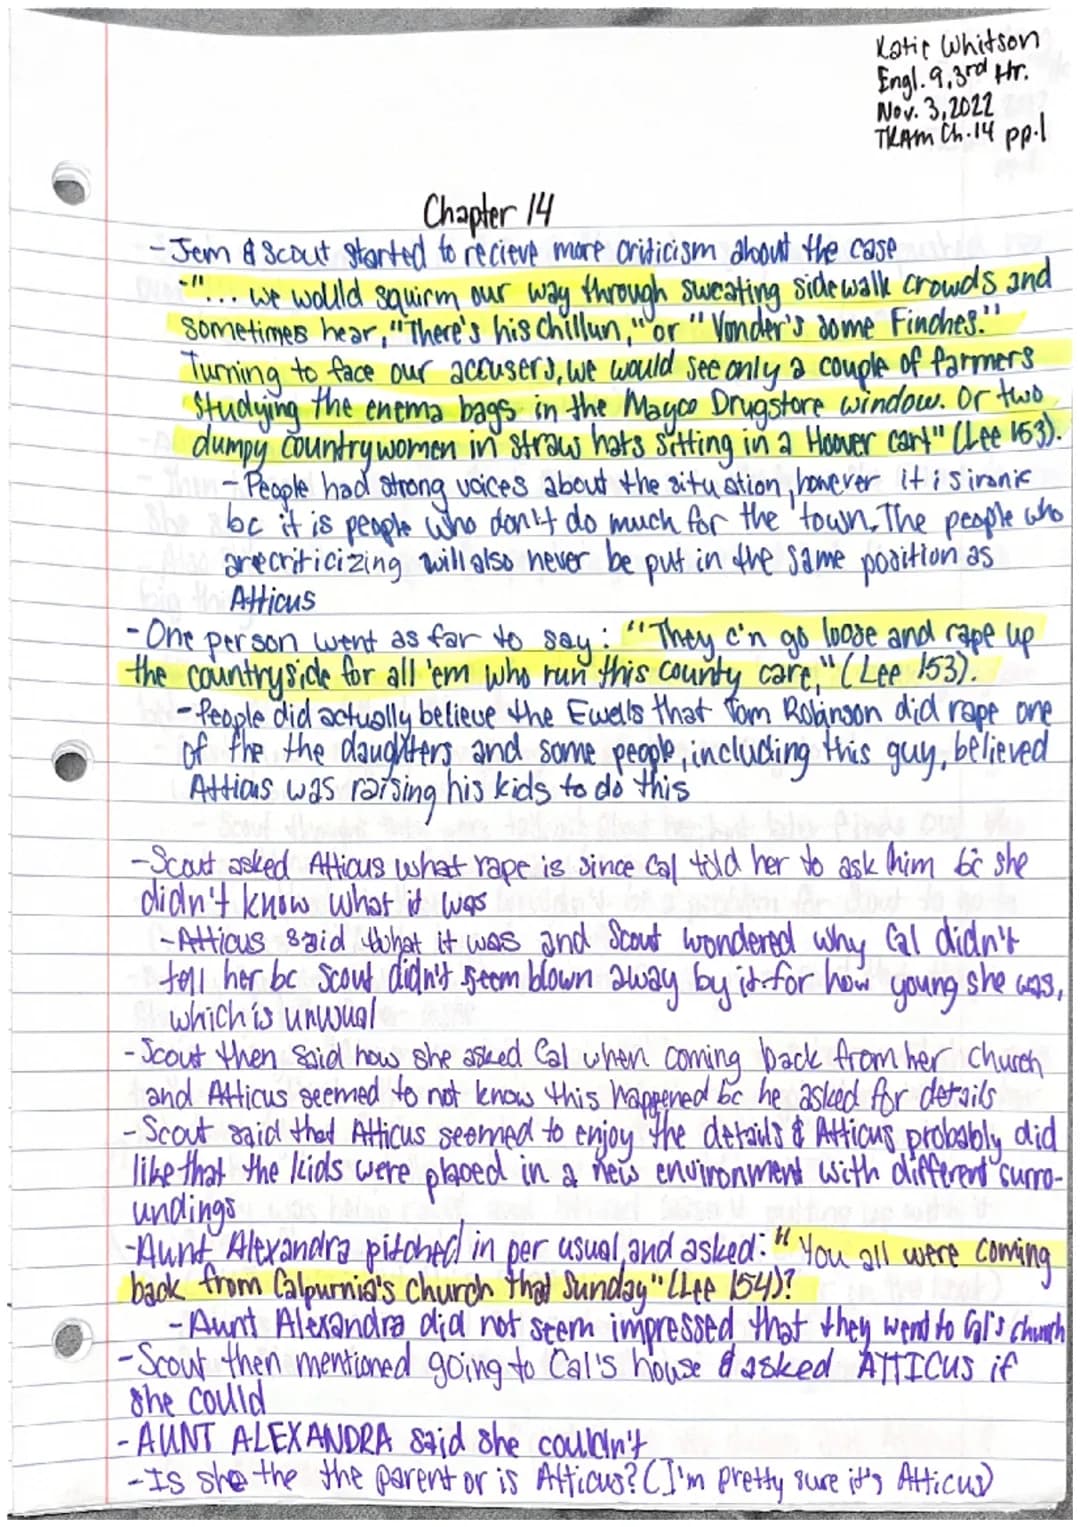 Katie Whitson
Engl. 9, 3rd Hr.
Nov. 3, 2022
TKAM Ch. 14 pp. 1
Chapter 14
- Jem & Scout started to recieve more criticism about the case
- "... we would squirm our way through sweating sidewalk crowds and
sometimes hear, "There's his chillun," or "Yonder's some Finches."
Turning to face our accusers, we would see only a couple of farmers
studying the enema bags in the Mayco Drugstore window. Or two
dumpy countrywomen in straw hats sitting in a Hoover cart" (Lee 153).
- People had strong voices about the situation, however it is ironic
bc it is people who don't do much for the town. The people who
are criticizing will also never be put in the same position as
Atticus
- One person went as far to say: "They c'n go loose and rape up
the countryside for all 'em who run this county care," (Lee 153).
- People did actually believe the Ewells that Tom Robinson did rape one
of the the daughters and some people, including this guy, believed
Atticus was raising his kids to do this
- Scout asked Atticus what rape is since Cal told her to ask him bc she
didn't know what it was
- Atticus said what it was and Scout wondered why Cal didn't
tell her bc Scout didn't seem blown away by it for how young she was,
which is unusual
- Scout then said how she asked Cal when coming back from her church
and Atticus seemed to not know this happened bc he asked for details
- Scout said that Atticus seemed to enjoy the details & Atticus probably did
like that the kids were placed in a new environment with different surro-
undings
- Aunt Alexandra pitched in per usual and asked: "You all were coming
back from Calpurnia's Church that Sunday" (Lee 154)?
- Aunt Alexandra did not seem impressed that they went to Cal's church
- Scout then mentioned going to Cal's house & asked ATTICUS if
she could
- AUNT ALEXANDRA said she couldn't
- Is she the the parent or is Atticus? (I'm pretty sure it's Atticus)